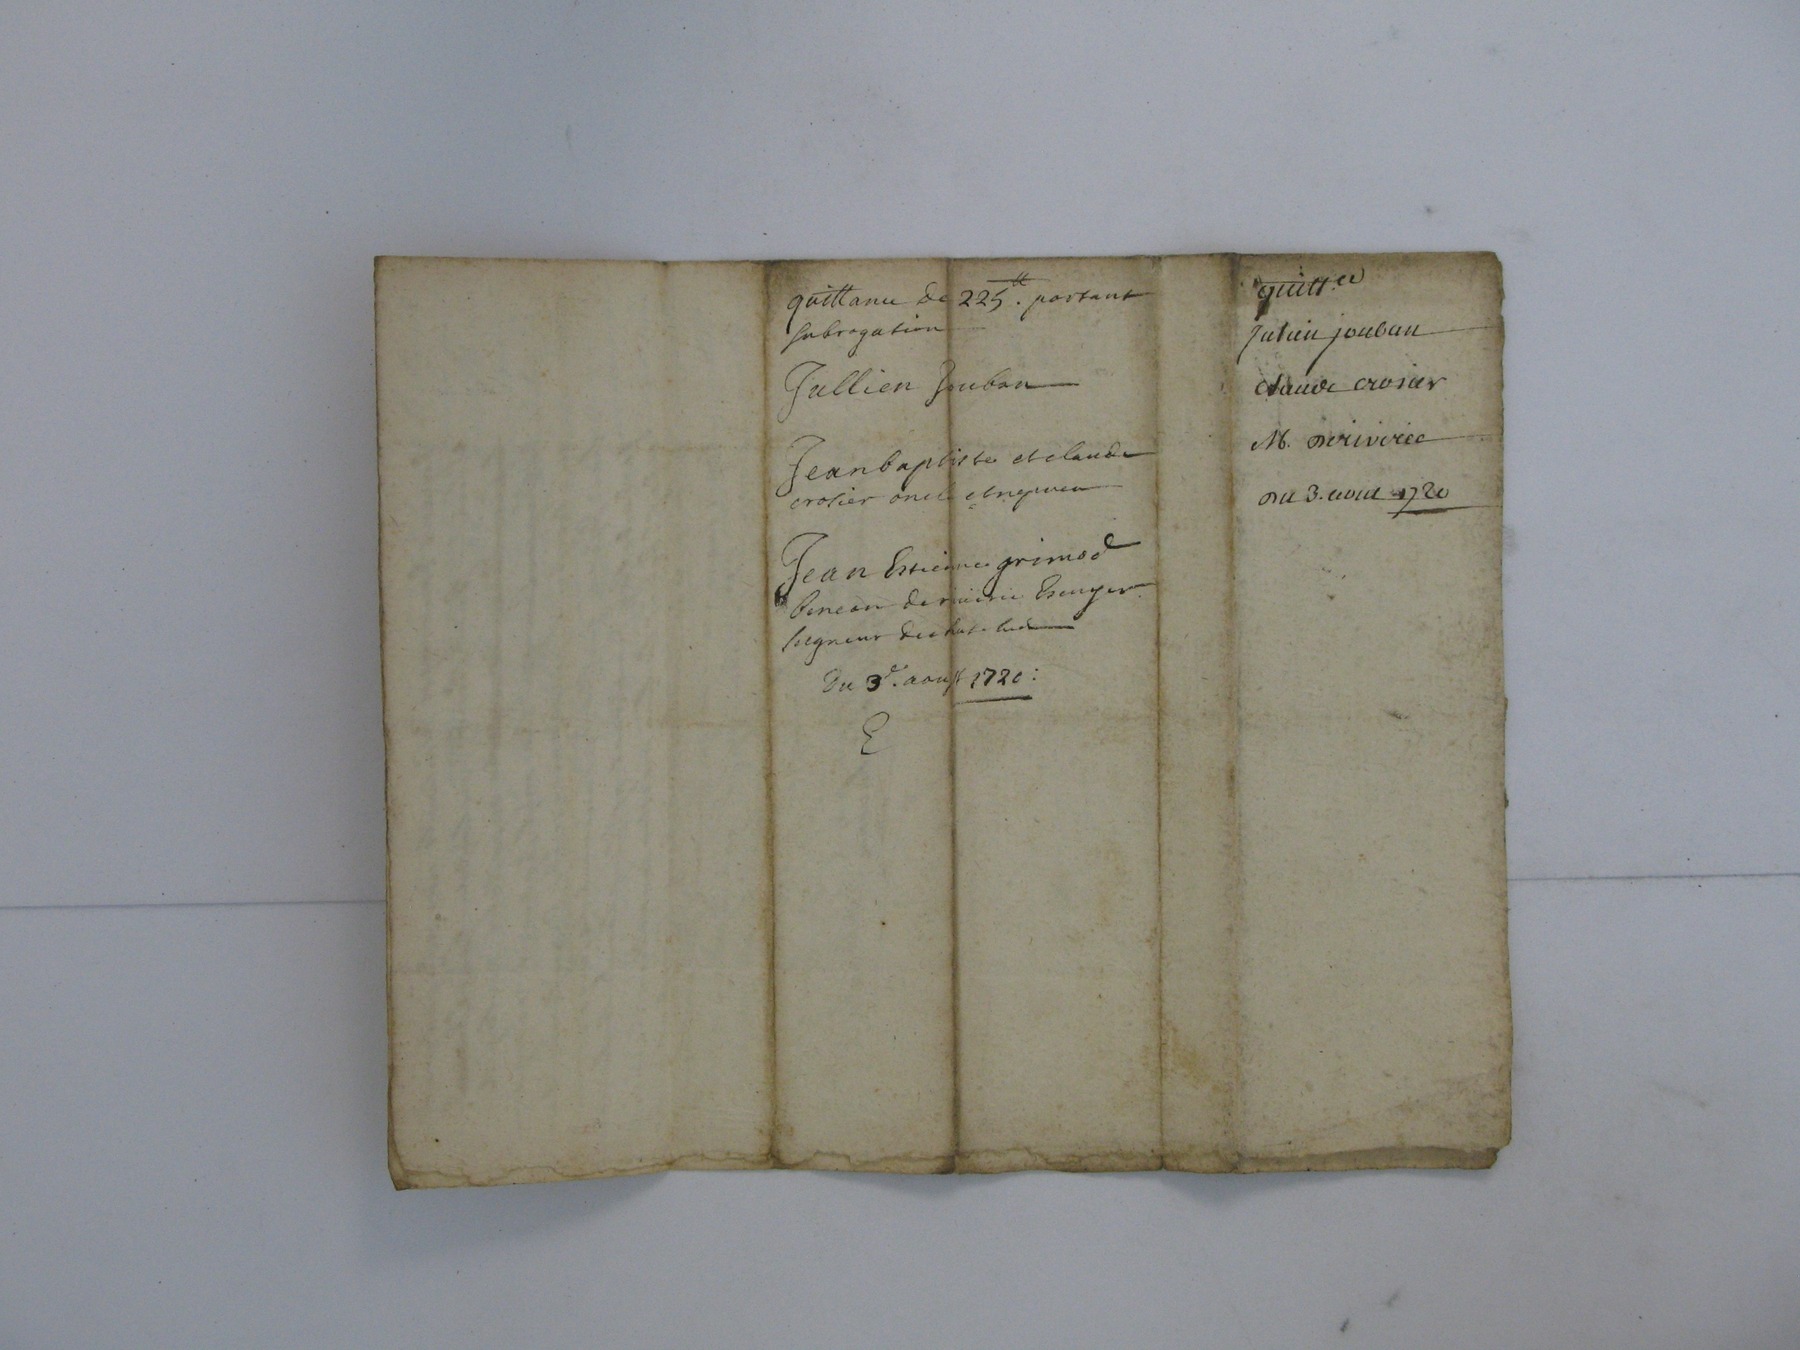 quittance de 225lt. portant
subrogation
Jullien Jouban
Jean baptiste et claude
crosier oncle et nepveu
Jean Estienne grimod
beneon de riverie Escuyer
seigneur de chatelud
Du 3e. aoust 1720:
E
quitt.ce
Julien jouban
claude crosier
M. de riverie
du 3. aout 1720